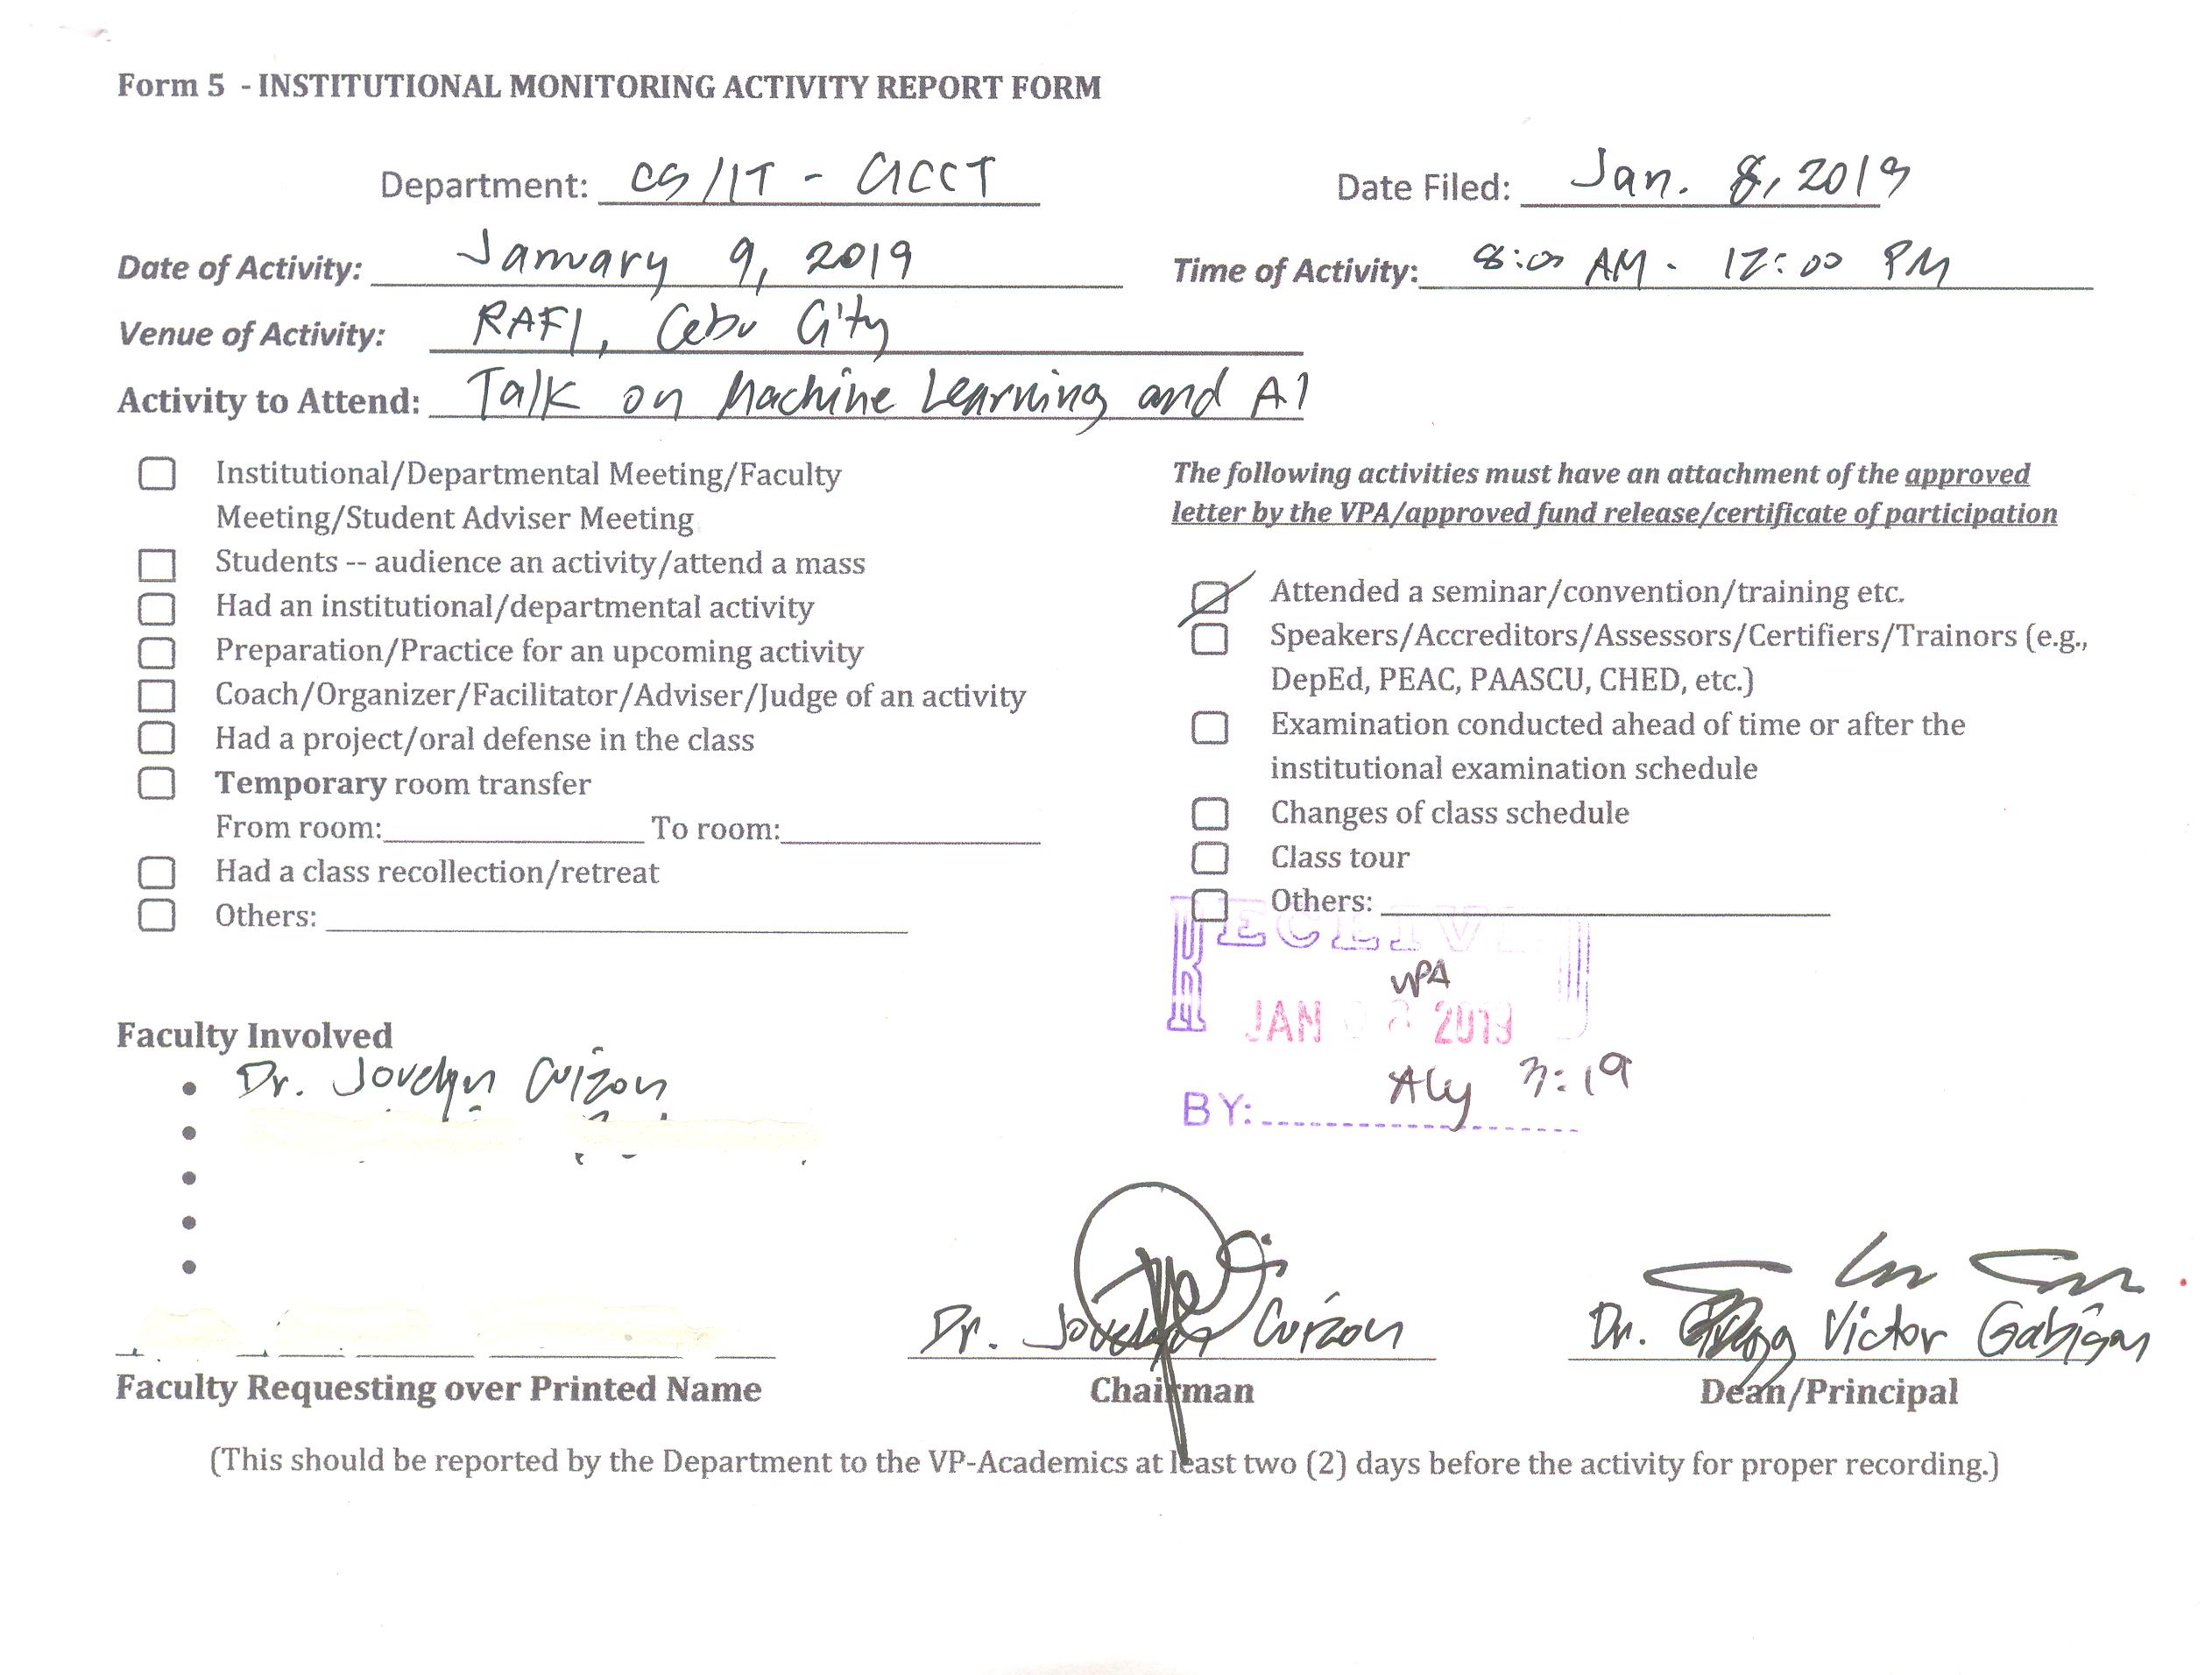 Form 5 - INSTITUTIONAL MONITORING ACTIVITY REPORT FORM
Department: CS/IT - CICCT
Date Filed: Jan. 8, 2019
Date of Activity: January 9, 2019
Time of Activity: 8:00 AM - 12:00 PM
Venue of Activity: RAFI, Cebu City
Activity to Attend: Talk on Machine Learning and AI
Institutional/Departmental Meeting/Faculty
Meeting/Student Adviser Meeting
Students -- audience an activity/attend a mass
Had an institutional/departmental activity
Preparation/Practice for an upcoming activity
Coach/Organizer/Facilitator/Adviser/Judge of an activity
Had a project/oral defense in the class
Temporary room transfer
From room: To room:
Had a class recollection/retreat
Others:
The following activities must have an attachment of the approved
letter by the VPA/approved fund release/certificate of participation
Attended a seminar/convention/training etc.
Speakers/Accreditors/Assessors/Certifiers/Trainors (e.g.,
DepEd, PEAC, PAASCU, CHED, etc.)
Examination conducted ahead of time or after the
institutional examination schedule
Changes of class schedule
Class tour
Others:
RECEIVE
VPA
JAN 2019
Aly 3:19
BY:
Faculty Involved
Dr. Jovelyn Cuizon
Dr. Jovelyn Cuizon
Dr. Victor Gabison
Faculty Requesting over Printed Name
Chairman
Dean/Principal
(This should be reported by the Department to the VP-Academics at least two (2) days before the activity for proper recording.)